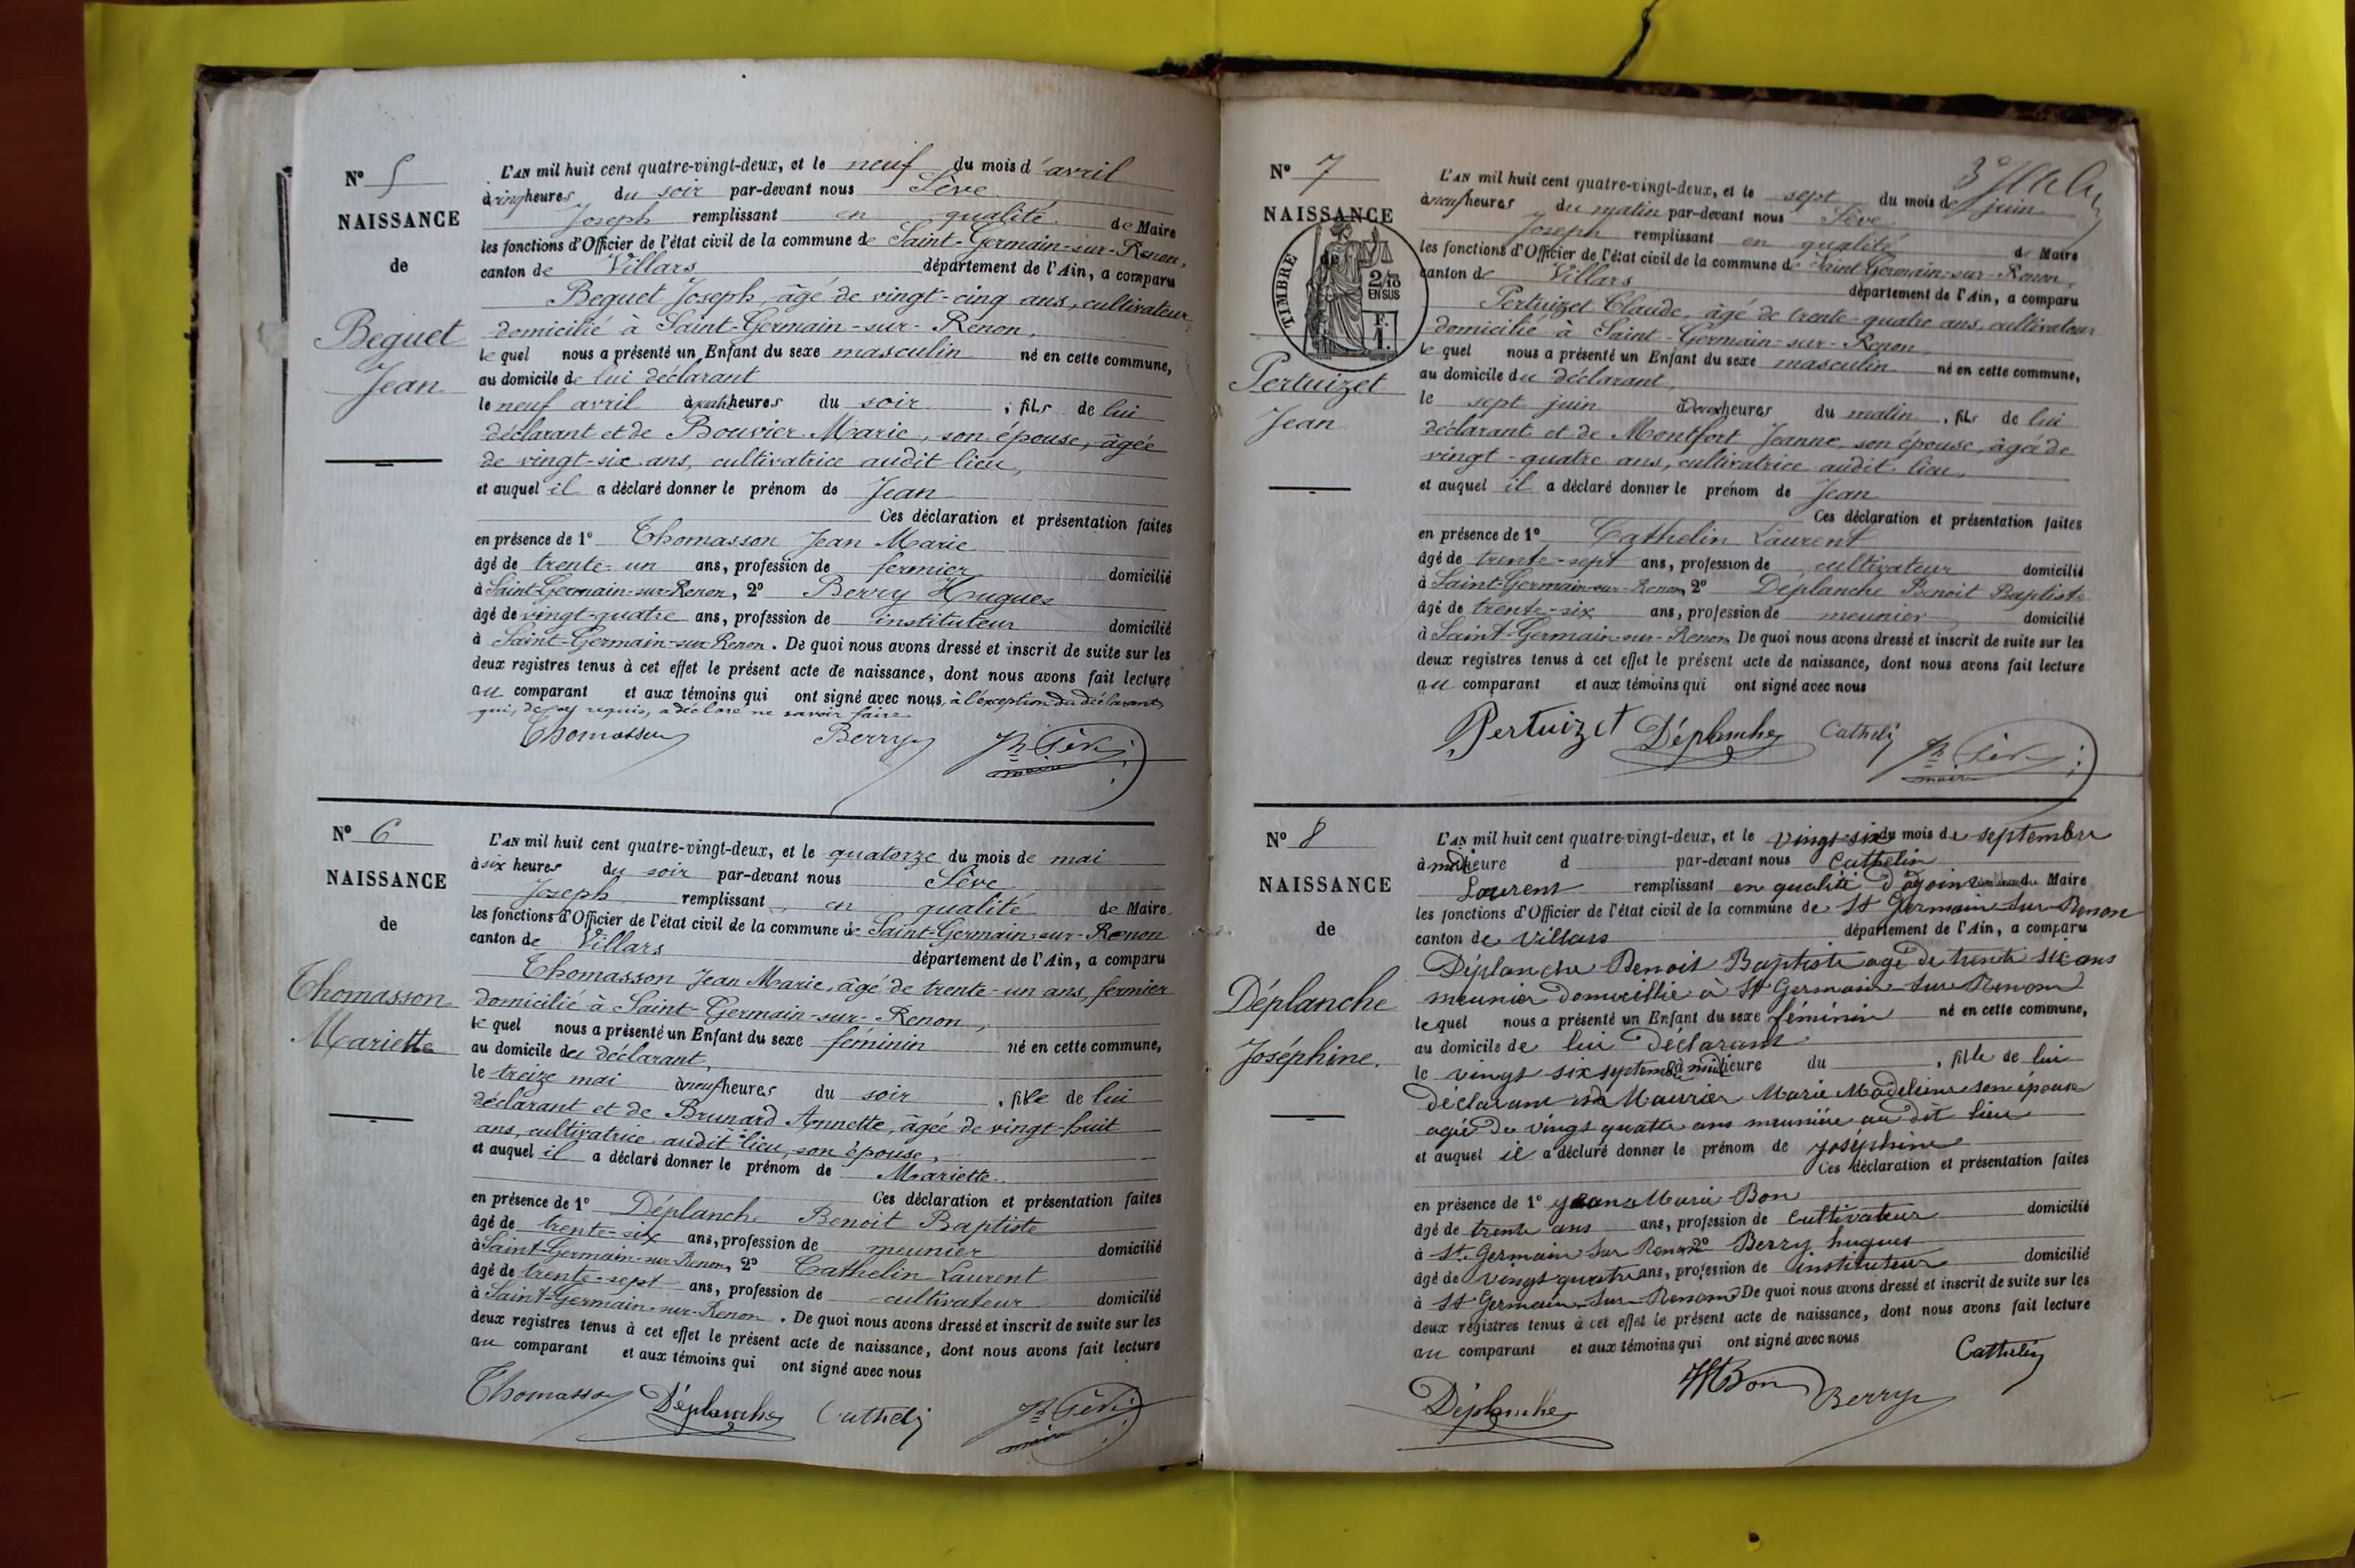 N° 5
NAISSANCE
de
Beguet
Jean
L'AN mil huit cent quatre-vingt-deux, et le neuf du mois d'avril
à cinq heures du soir par-devant nous Sève
Joseph remplissant en qualité de Maire
les fonctions d'Officier de l'état civil de la commune de Saint-Germain-sur-Renon,
canton de Villars département de l'Ain, a comparu
Beguet Joseph, âgé de vingt-cinq ans, cultivateur
domicilié à Saint-Germain-sur-Renon,
lequel nous a présenté un Enfant du sexe masculin né en cette commune,
au domicile de lui déclarant
le neuf avril à quatre heures du soir, fils de lui
déclarant et de Bouvier Marie, son épouse, âgée
de vingt-six ans, cultivatrice audit lieu,
et auquel il a déclaré donner le prénom de Jean
Ces déclaration et présentation faites
en présence de 1° Thomasson Jean Marie
âgé de trente-un ans, profession de fermier domicilié
à Saint-Germain-sur-Renon, 2° Berry Hugues
âgé de vingt-quatre ans, profession de instituteur domicilié
à Saint-Germain-sur-Renon. De quoi nous avons dressé et inscrit de suite sur les
deux registres tenus à cet effet le présent acte de naissance, dont nous avons fait lecture
au comparant et aux témoins qui ont signé avec nous, à l'exception du déclarant
qui, de ce requis, a déclaré ne savoir faire.
Thomasson Berry Jh Sève
maire
N° 6
NAISSANCE
de
Thomasson
Mariette
L'AN mil huit cent quatre-vingt-deux, et le quatorze du mois de mai
à six heures du soir par-devant nous Sève
Joseph remplissant en qualité de Maire
les fonctions d'Officier de l'état civil de la commune de Saint-Germain-sur-Renon
canton de Villars département de l'Ain, a comparu
Thomasson Jean Marie, âgé de trente-un ans, fermier
domicilié à Saint-Germain-sur-Renon,
lequel nous a présenté un Enfant du sexe féminin né en cette commune,
au domicile du déclarant,
le treize mai à neuf heures du soir, fille de lui
déclarant et de Brunard Annette, âgée de vingt-huit
ans, cultivatrice audit lieu, son épouse,
et auquel il a déclaré donner le prénom de Mariette.
Ces déclaration et présentation faites
en présence de 1° Déplanche Benoit Baptiste
âgé de trente-six ans, profession de meunier domicilié
à Saint-Germain-sur-Renon, 2° Cathelin Laurent
âgé de trente-sept ans, profession de cultivateur domicilié
à Saint-Germain-sur-Renon. De quoi nous avons dressé et inscrit de suite sur les
deux registres tenus à cet effet le présent acte de naissance, dont nous avons fait lecture
au comparant et aux témoins qui ont signé avec nous
Thomasson Déplanche Cathelin Jh Sève
maire
N° 7
NAISSANCE
de
TIMBRE
2/10
EN SUS
Pertuizet
Jean
L'AN mil huit cent quatre-vingt-deux, et le sept du mois de juin
à neuf heures du matin par-devant nous Sève
Joseph remplissant en qualité de Maire
les fonctions d'Officier de l'état civil de la commune de Saint-Germain-sur-Renon,
canton de Villars département de l'Ain, a comparu
Pertuizet Claude, âgé de trente-quatre ans, cultivateur
domicilié à Saint-Germain-sur-Renon,
lequel nous a présenté un Enfant du sexe masculin né en cette commune,
au domicile du déclarant,
le sept juin à deux heures du matin, fils de lui
déclarant et de Montfort Jeanne, son épouse, âgée de
vingt-quatre ans, cultivatrice audit lieu,
et auquel il a déclaré donner le prénom de Jean
Ces déclaration et présentation faites
en présence de 1° Cathelin Laurent
âgé de trente-sept ans, profession de cultivateur domicilié
à Saint-Germain-sur-Renon, 2° Déplanche Benoit Baptiste
âgé de trente-six ans, profession de meunier domicilié
à Saint-Germain-sur-Renon De quoi nous avons dressé et inscrit de suite sur les
deux registres tenus à cet effet le présent acte de naissance, dont nous avons fait lecture
au comparant et aux témoins qui ont signé avec nous
Pertuizet Déplanche Cathelin Jh Sève
maire
N° 8
NAISSANCE
de
Déplanche
Joséphine.
L'AN mil huit cent quatre-vingt-deux, et le vingt six du mois de septembre
à midi heure d par-devant nous Cathelin
Laurent remplissant en qualité d'adjoint du Maire
les fonctions d'Officier de l'état civil de la commune de St Germain Sur Renon
canton de Villars département de l'Ain, a comparu
Déplanche Benoit Baptiste agé de trente six ans
meunier domicillié à St Germain Sur Renon
lequel nous a présenté un Enfant du sexe féminin né en cette commune,
au domicile de lui déclarant
le vingt six septembre à midi heure du , fille de lui
déclarant et de Maurier Marie Madeleine son épouse
agée de vingt quatre ans meunière au dit lieu
et auquel il a déclaré donner le prénom de joséphine
Ces déclaration et présentation faites
en présence de 1° jean Marie Bon
âgé de trente ans ans, profession de Cultivateur domicilié
à St Germain Sur Renon 2° Berry hugues
âgé de vingt quatre ans, profession de instituteur domicilié
à St Germain Sur Renon De quoi nous avons dressé et inscrit de suite sur les
deux registres tenus à cet effet le présent acte de naissance, dont nous avons fait lecture
au comparant et aux témoins qui ont signé avec nous
Cathelin
Déplanche JM Bon Berry